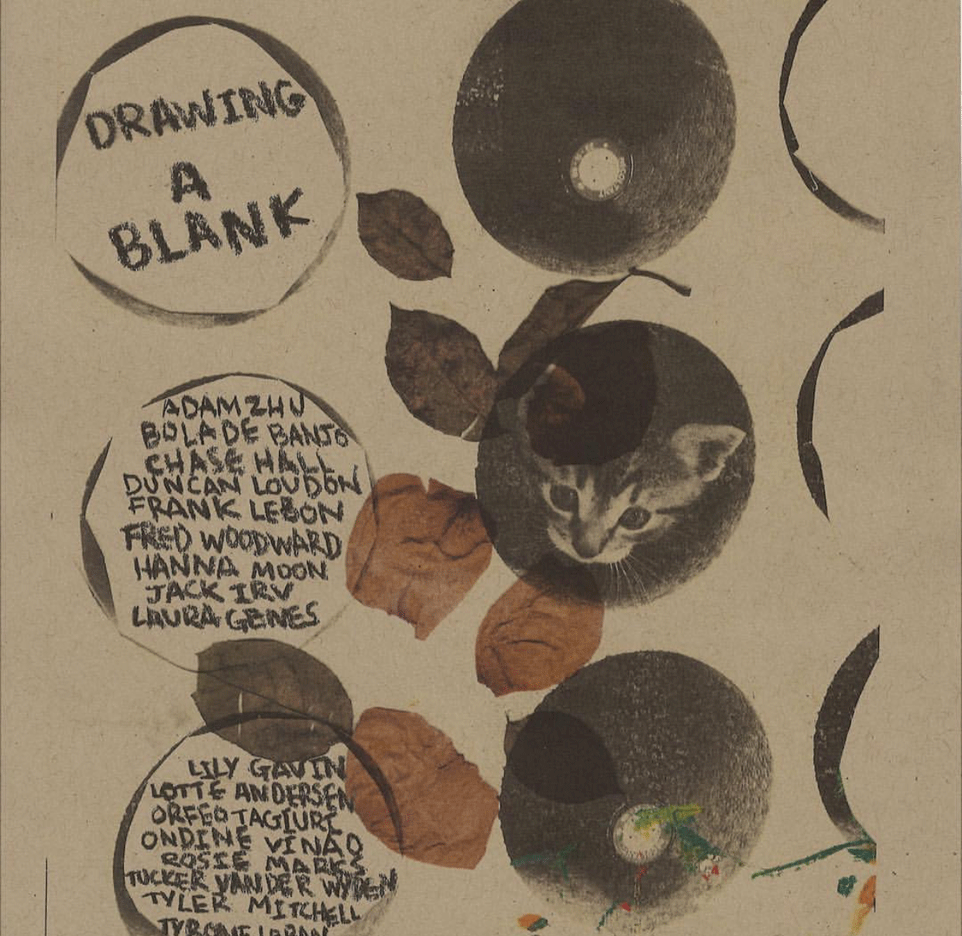 DRAWING
A
BLANK
ADAM ZHU
BOLADE BANJO
CHASE HALL
DUNCAN LOUDON
FRANK LEBON
FRED WOODWARD
HANNA MOON
JACK IRV
LAURA GENES
LILY GAVIN
LOTTE ANDERSEN
ORFEO TAGIURI
ONDINE VINAO
ROSIE MARKS
TUCKER VAN DER WYDEN
TYLER MITCHELL
TYRONE LEBON